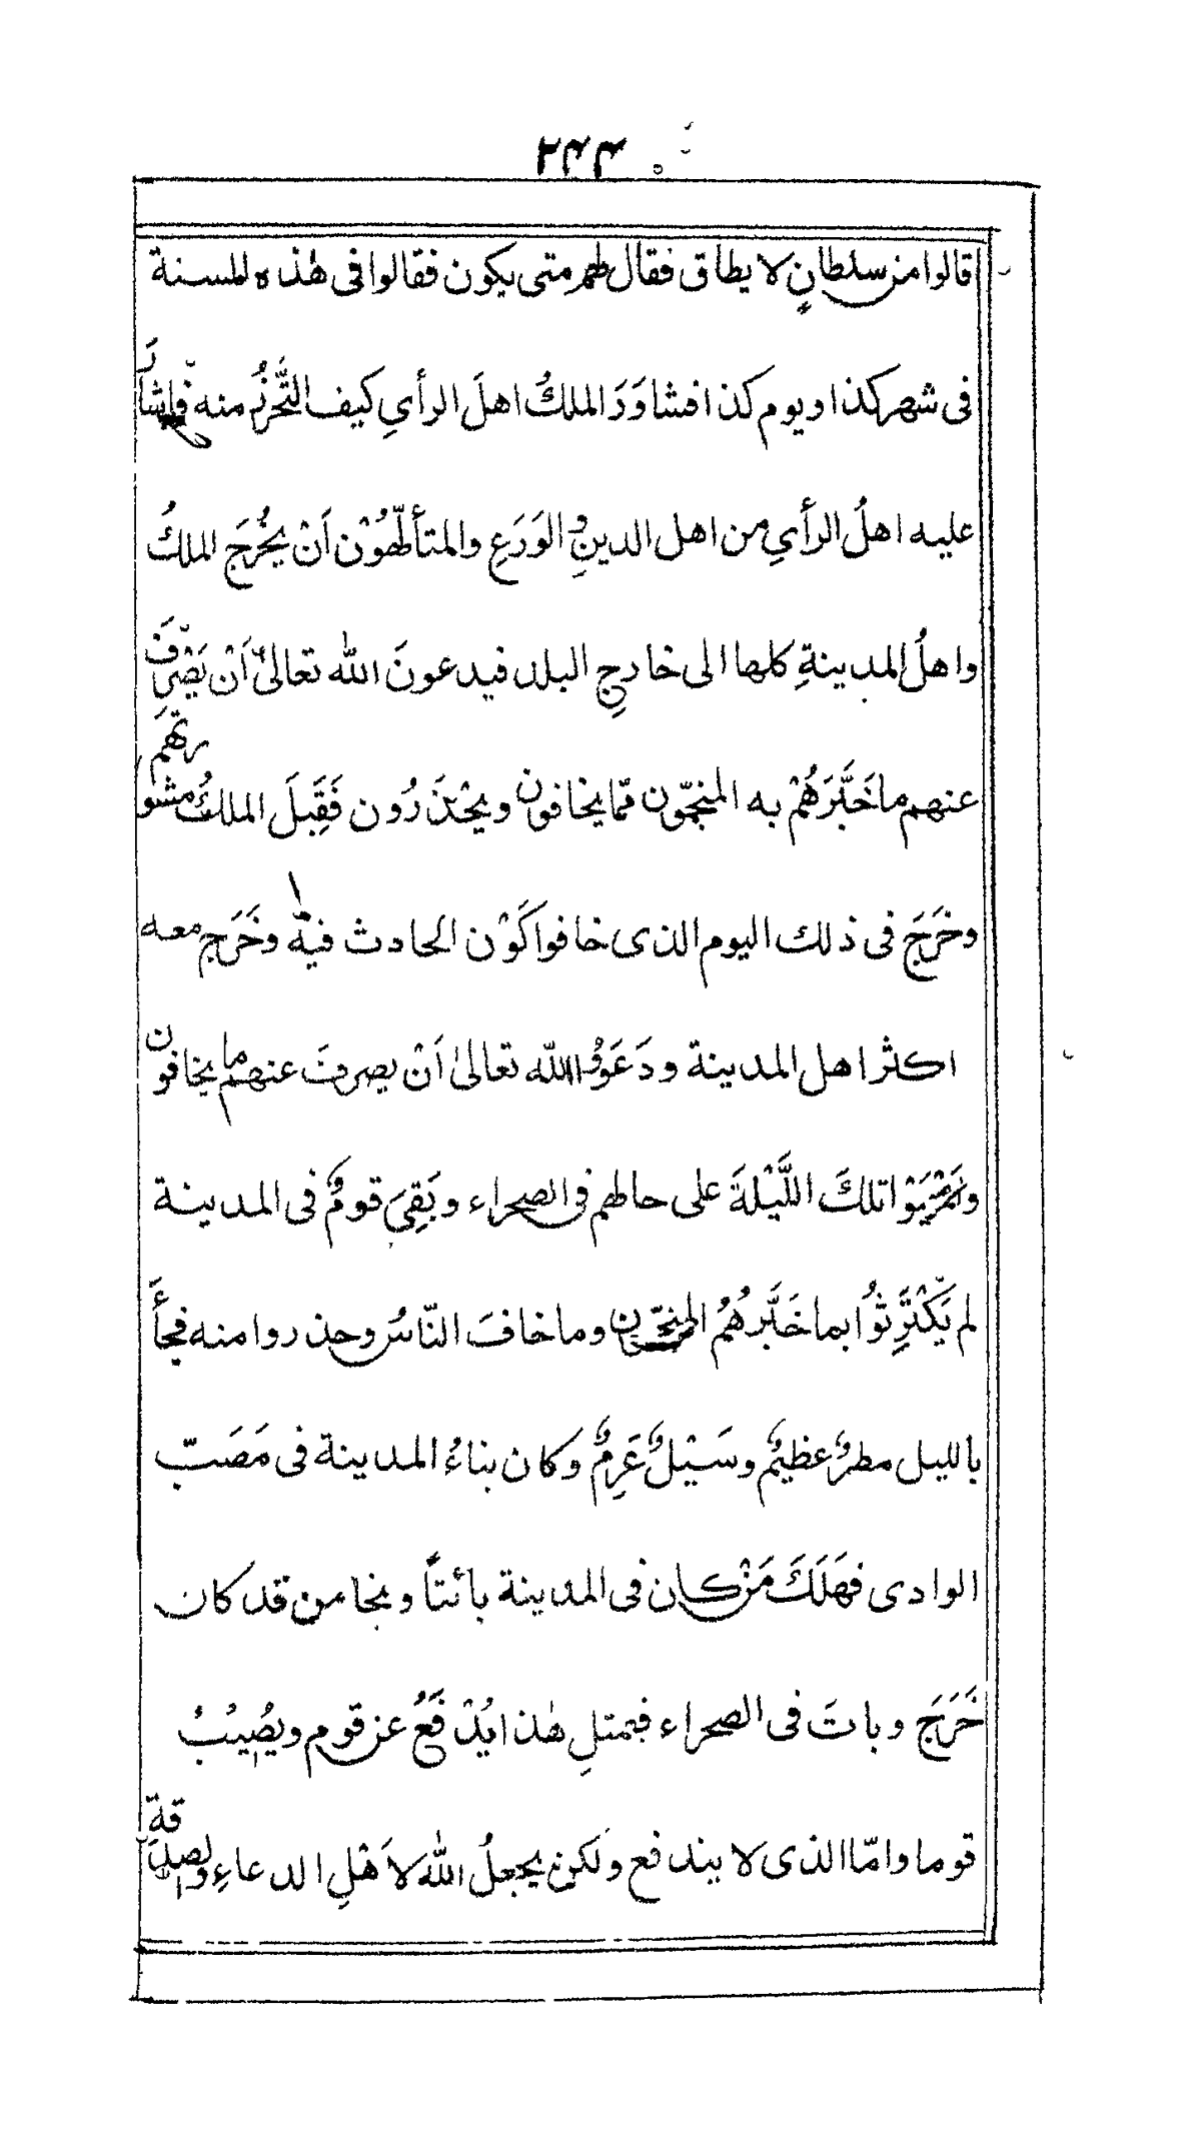 ٢٤٣
قالوا من سلطانٍ لا يطاق فقال لهم متى يكون فقالوا فى هٰذه السنة
فى شهر كذا ويوم كذا فشاوَرَ الملكُ اهلَ الرأىِ كيف التَّحرُّزُ منه فاشارَ
عليه اهلُ الرأىِ من اهل الدينِ والوَرَعِ والمتألّهُوْن اَنْ يَخْرُجَ الملكُ
واهلُ المدينةِ كلها الى خارجِ البلد فيدعونَ الله تعالىٰ اَنْ يَصْرِفَ
عنهم ما خَبَّرَهُمْ به المنجّمون ممّا يخافون ويحْذَرُون فَقَبِلَ الملكُ مشورتهم
وخَرَجَ فى ذلك اليوم الذى خافوا كَوْن الحادث فيه وخَرَج معه
اكثر اهل المدينة ودَعَوُا الله تعالىٰ اَنْ يصرفَ عنهم ما يخافون
وبَاتُوْا تلكَ اللَّيْلَةَ على حالهم فى الصحراء وبَقِىَ قومٌ فى المدينة
لم يَكْتَرِثُوا بما خَبَّرهُمُ المنجّمون وما خافَ النّاسُ وحذروا منه فجأَ
بالليل مطرٌ عظيمٌ وسَيْلٌ عَرِمٌ وكان بناءُ المدينة فى مَصَبّ
الوادى فهَلَكَ مَنْ كان فى المدينة بائتاً ونجا من قد كان
خَرَجَ وباتَ فى الصحراء فبمثلِ هٰذا يُدْفَعُ عن قوم ويُصِيْبُ
قوما وامّا الذى لا يندفع ولكن يجعلُ الله لاَهْلِ الدعاءِ والصدقةِ